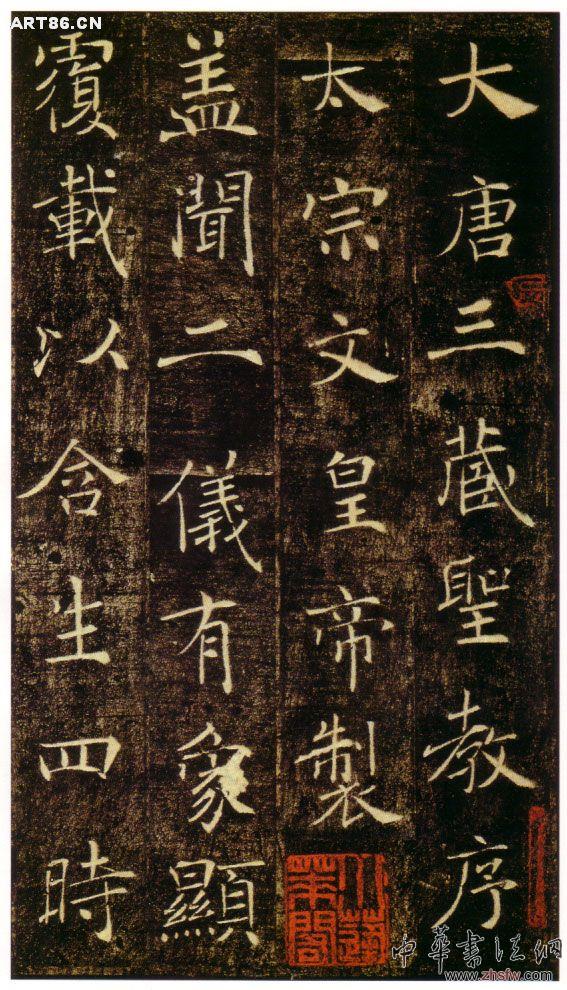 大唐三藏聖教序
太宗文皇帝製
蓋聞二儀有象顯
覆載以含生四時
ART86.CN
中華書法網
www.zhsfw.com